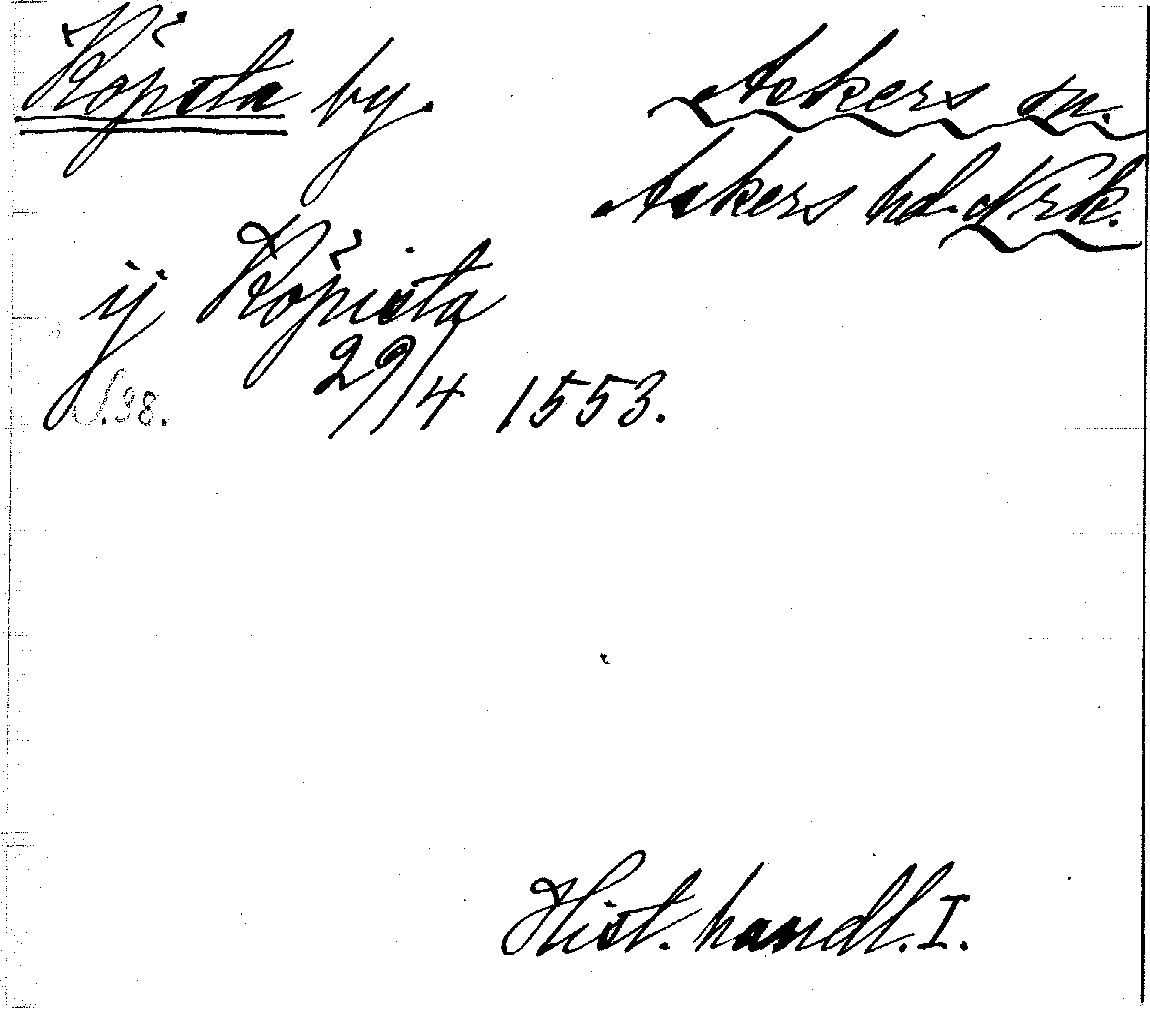 Köpsta by. Askers sn.
Askers hd. Nrk.
ij Köpista
29/4 1553.
S. 98.
Hist. handl. I.